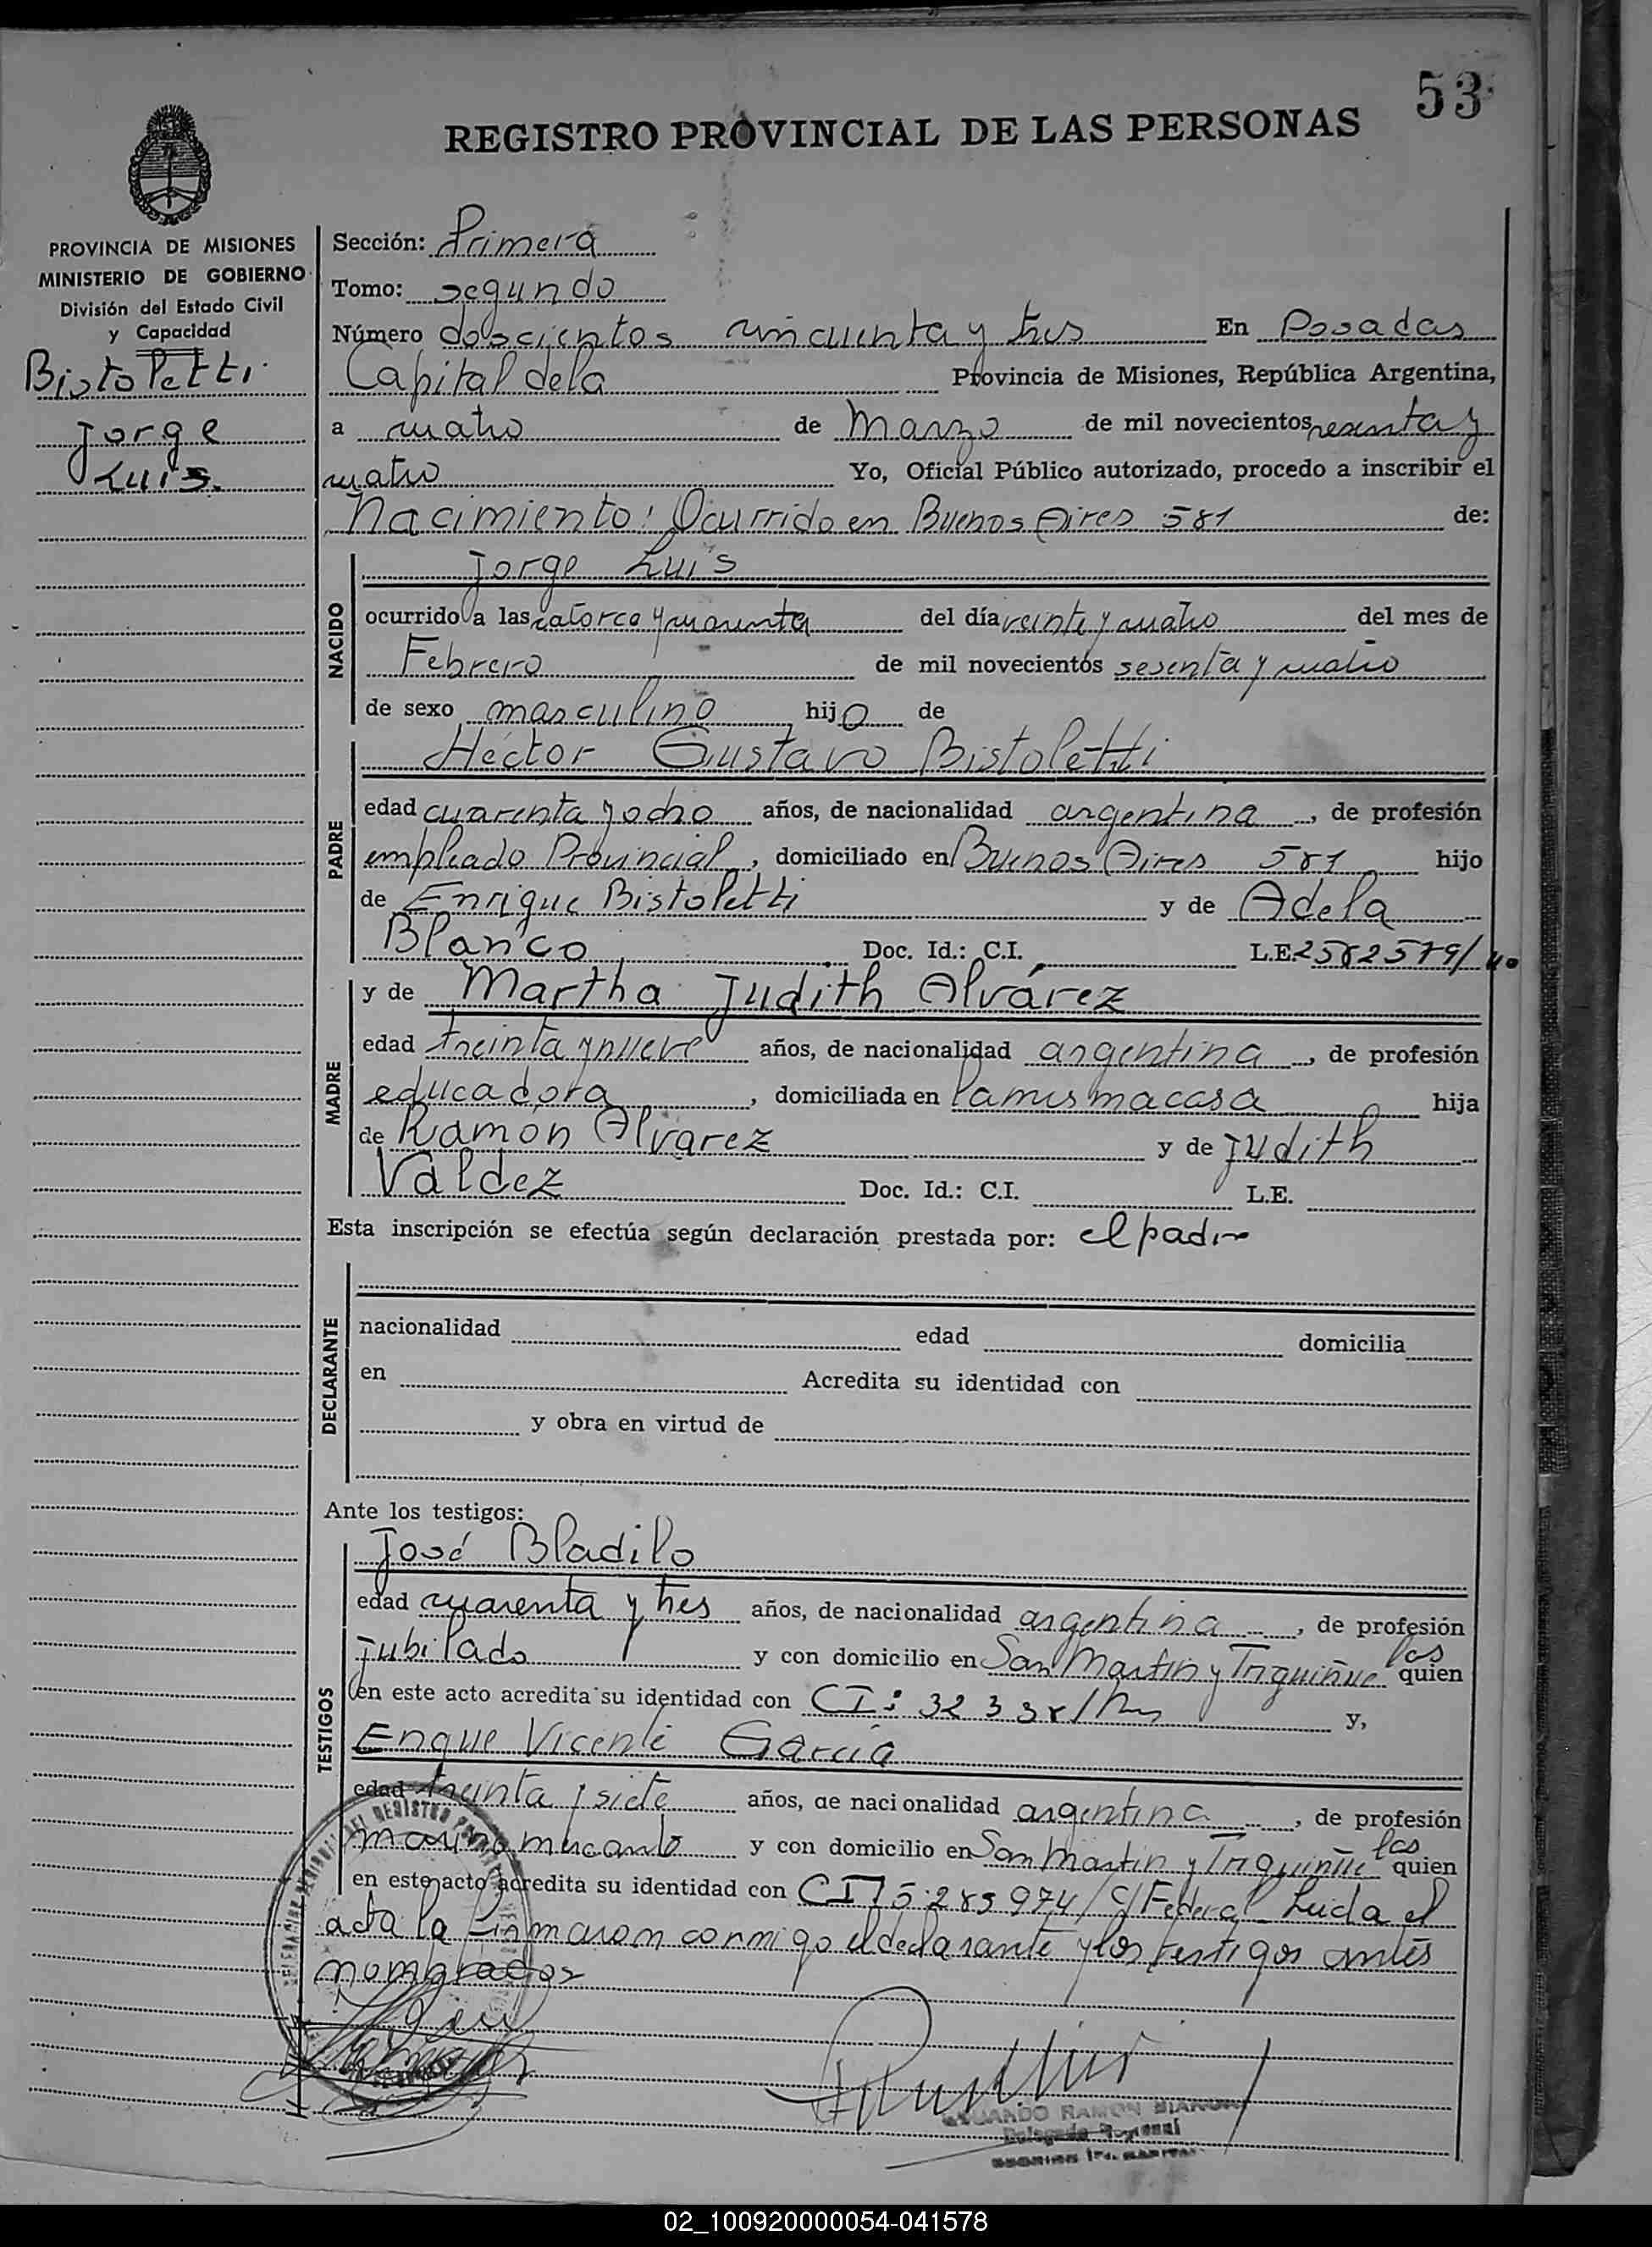 53
REGISTRO PROVINCIAL DE LAS PERSONAS
PROVINCIA DE MISIONES
MINISTERIO DE GOBIERNO
División del Estado Civil
y Capacidad
Bistoletti
Jorge
Luis.
Sección: Primera
Tomo: segundo
Número doscientos cincuenta y tres En Posadas
Capital de la Provincia de Misiones, República Argentina,
a cuatro de Marzo de mil novecientos sesenta y
cuatro Yo, Oficial Público autorizado, procedo a inscribir el
Nacimiento: Ocurrido en Buenos Aires 581 de:
NACIDO
Jorge Luis
ocurrido a las catorce y cuarenta del día veinte y cuatro del mes de
Febrero de mil novecientos sesenta y cuatro
de sexo masculino hijo de
PADRE
Héctor Gustavo Bistoletti
edad cuarenta y ocho años, de nacionalidad argentina, de profesión
empleado Provincial, domiciliado en Buenos Aires 581 hijo
de Enrique Bistoletti y de Adela
Blanco Doc. Id.: C.I. L.E.
MADRE
y de Martha Judith Alvarez
edad treinta y nueve años, de nacionalidad argentina, de profesión
educadora, domiciliada en la misma casa hija
de Ramón Alvarez y de Judith
Valdez Doc. Id.: C.I. L.E.
Esta inscripción se efectúa según declaración prestada por: el padre
DECLARANTE
nacionalidad edad domicilia
en Acredita su identidad con
y obra en virtud de
Ante los testigos:
TESTIGOS
José Bladilo
edad cuarenta y tres años, de nacionalidad argentina, de profesión
jubilado y con domicilio en San Martin y quien
en este acto acredita su identidad con CI: y,
Enrique Vicente García
edad treinta y siete años, de nacionalidad argentina, de profesión
marino mercante y con domicilio en San Martin y quien
en este acto acredita su identidad con CI 5.285974/C/Federal Leida el
acta la firmaron conmigo el declarante y los testigos antes
nombrados
Delegado Regional
02_100920000054-041578